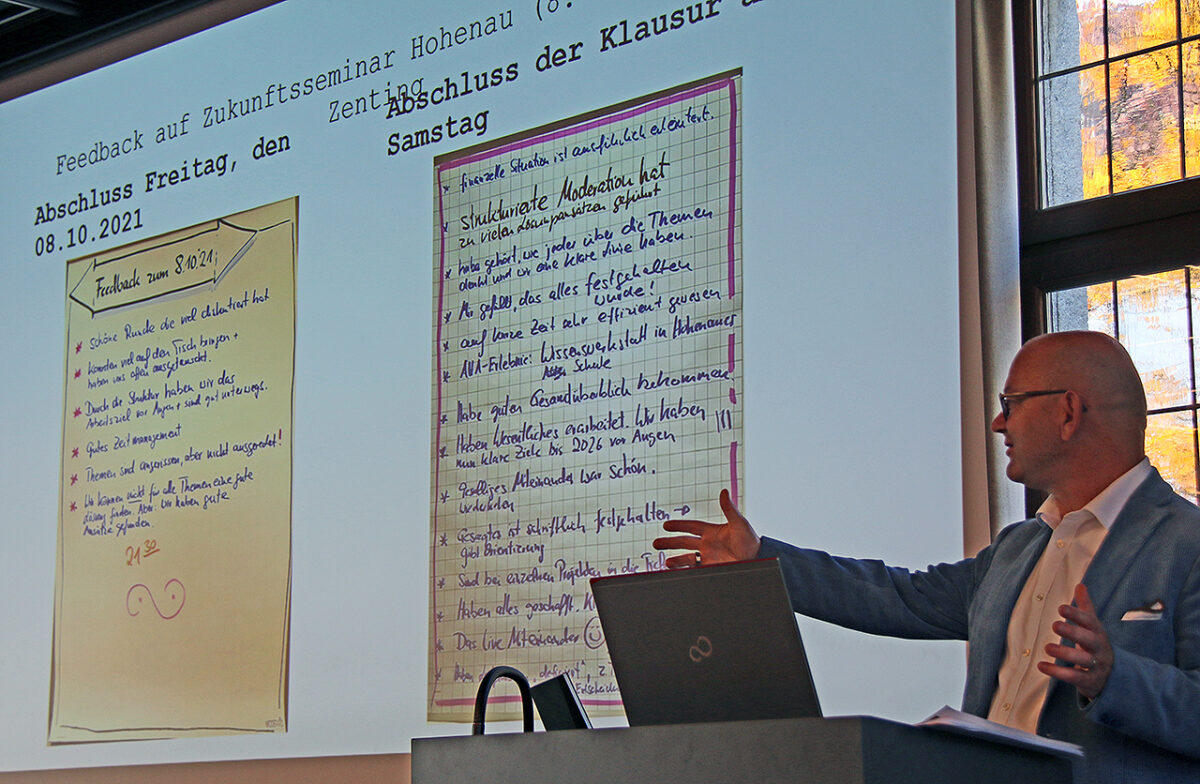 Feedback auf Zukunftsseminar Hohenau (8.
Zenting
Abschluss Freitag, den
08.10.2021
Feedback zum 8.10.'21
* Schöne Runde die viel diskutiert hat
* Konnten viel auf den Tisch bringen +
haben uns offen ausgetauscht.
* Durch die Struktur haben wir das
Arbeitsziel vor Augen + sind gut unterwegs.
* Gutes Zeitmanagement
* Themen sind angerissen, aber nicht ausgeredet!
* Wir können nicht für alle Themen eine gute
Lösung finden. Aber: Wir haben gute
Ansätze gefunden.
21 30
Abschluss der Klausur
Samstag
* finanzielle Situation ist ausführlich erläutert.
* Strukturierte Moderation hat
zu vielen Lösungsansätzen geführt
* habe gehört, wie jeder über die Themen
denkt und wir eine klare Linie haben.
* Mir gefällt, das alles festgehalten
wurde!
* auf kurze Zeit sehr effizient gewesen
* AHA-Erlebnis: Wissenswerkstatt in Hohenauer
Schule
* Habe guten Gesamtüberblick bekommen.
* Haben Wesentliches erarbeitet. Wir haben
nun klare Ziele bis 2026 vor Augen
* Geselliges Miteinander war schön.
wiederholen
* Gesagtes ist schriftlich festgehalten →
gibt Orientierung
* Sind bei einzelnen Projekten in die
* Haben alles geschafft.
* Das live Miteinander
* Haben "definiert",